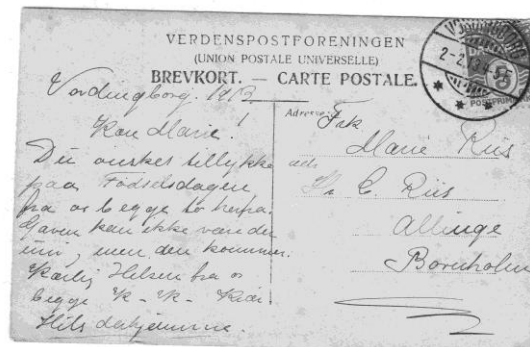 VERDENSPOSTFORENINGEN
(UNION POSTALE UNIVERSELLE)
BREVKORT. — CARTE POSTALE.
Vordingborg. 1913
Kære Marie!
Du ønskes tillykke
paa Fødselsdagen
fra os begge to herfra.
Gaven kan ikke være der
inni, men den kommer.
Kærlig Hilsen fra os
begge K - K - Riis
Hils derhjemme.
VORDINGBORG
2-2.13
POSTFRIM
Adresse:
Frk
Marie Riis
adr.
Hr. C. Riis
Allinge
Bornholm